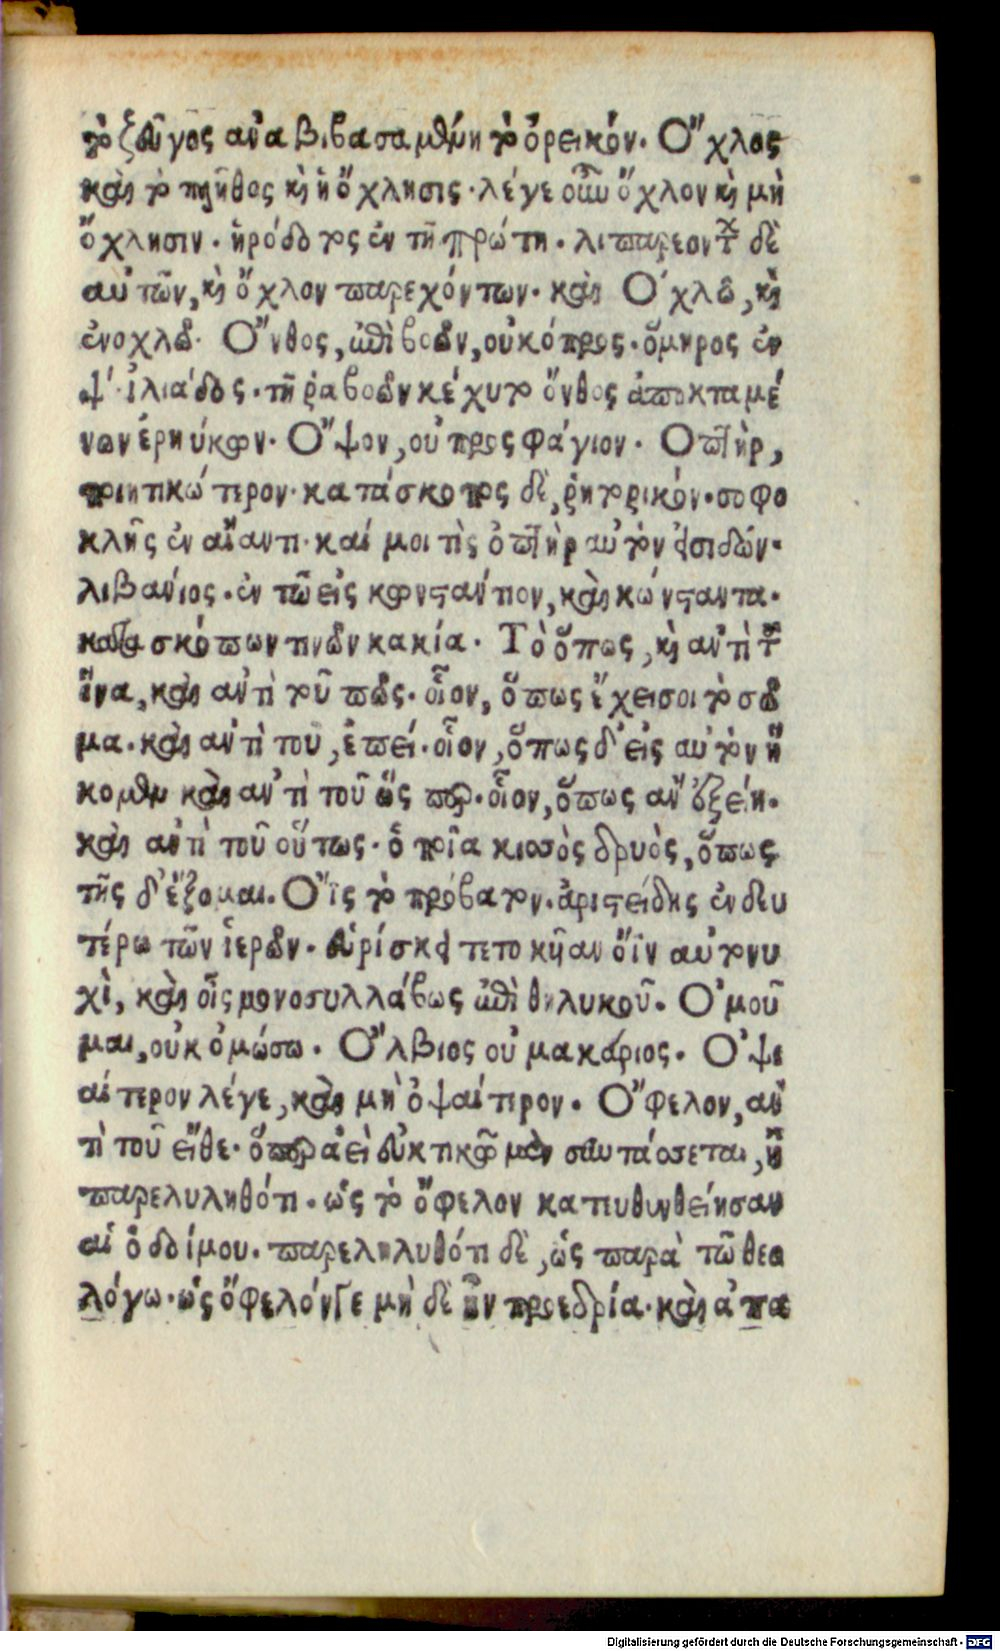 τὸ ζεῦγος ἀναβιβασαμένη τὸ ὀρεικόν. Ὄχλος
καὶ τὸ πλῆθος καὶ ἡ ὄχλησις. λέγε οὖν ὄχλον καὶ μὴ
ὄχλησιν. ἡρόδοτος ἐν τῇ πρώτῃ. δὲ
αὐτῶν, καὶ ὄχλον παρεχόντων. καὶ Ὀχλῶ, καὶ
ἐνοχλῶ. Ὄνθος, ἐπὶ βοῶν, οὐ κόπρος. ὅμηρος ἐν
ψ΄ ἰλιάδος. τῇ ῥα βοῶν κέχυτο ὄνθος ἀποκταμέ
νων ἐρηύκων. Ὄψον, οὐ προσφάγιον. Ὀπτὴρ,
ποιητικώτερον. κατάσκοπος δὲ, ῥητορικόν. σοφο
κλῆς ἐν αἴαντι. καί μοι τὶς ὀπτὴρ αὐτὸν εἰσιδών.
λιβάνιος. ἐν τῷ εἰς κωνστάντιον, καὶ κώνσταντα.
κατασκόπων τινῶν κακία. Τὸ ὅπως, καὶ ἀντὶ τοῦ
ἵνα, καὶ ἀντὶ τοῦ πῶς. οἷον, ὅπως ἔχει σοι τὸ σῶ
μα. καὶ ἀντὶ του, ἐπεί. οἷον, ὅπως δ' εἰς αὐτὸν ἥ
κομεν καὶ ἀντὶ τοῦ ὥς περ. οἷον, ὅπως ἂν δόξειη.
καὶ ἀντὶ τοῦ οὕτως. ὁποῖα κισσὸς δρυὸς, ὅπως
τῆς δ' ἕξομαι. Ὄϊς τὸ πρόβατον. ἀριστείδης ἐν δευ
τέρῳ τῶν ἱερῶν. καὶ ὄϊν
χὶ, καὶ οἶς μονοσυλλάβως ἐπὶ θηλυκοῦ. Ὀμοῦ
μαι, οὐκ ὀμώσω. Ὄλβιος οὐ μακάριος. Ὀψι
αίτερον λέγε, καὶ μὴ ὀψαίτερον. Ὄφελον, ἀν
τὶ τοῦ εἴθε. ὅπερ ἀεὶ εὐκτικῷ μὲν συντάσσεται, ἢ
παρελυληθότι. ὡς τὸ ὄφελον κατευθυνθείησαν
αἱ ὁδοί μου. παρεληλυθότι δὲ, ὡς παρὰ τῷ θεο
λόγω. ὡς ὄφελόν γε μὴ δὲ ἦν προεδρία. καὶ ἁπα
Digitalisierung gefördert durch die Deutsche Forschungsgemeinschaft - DFG